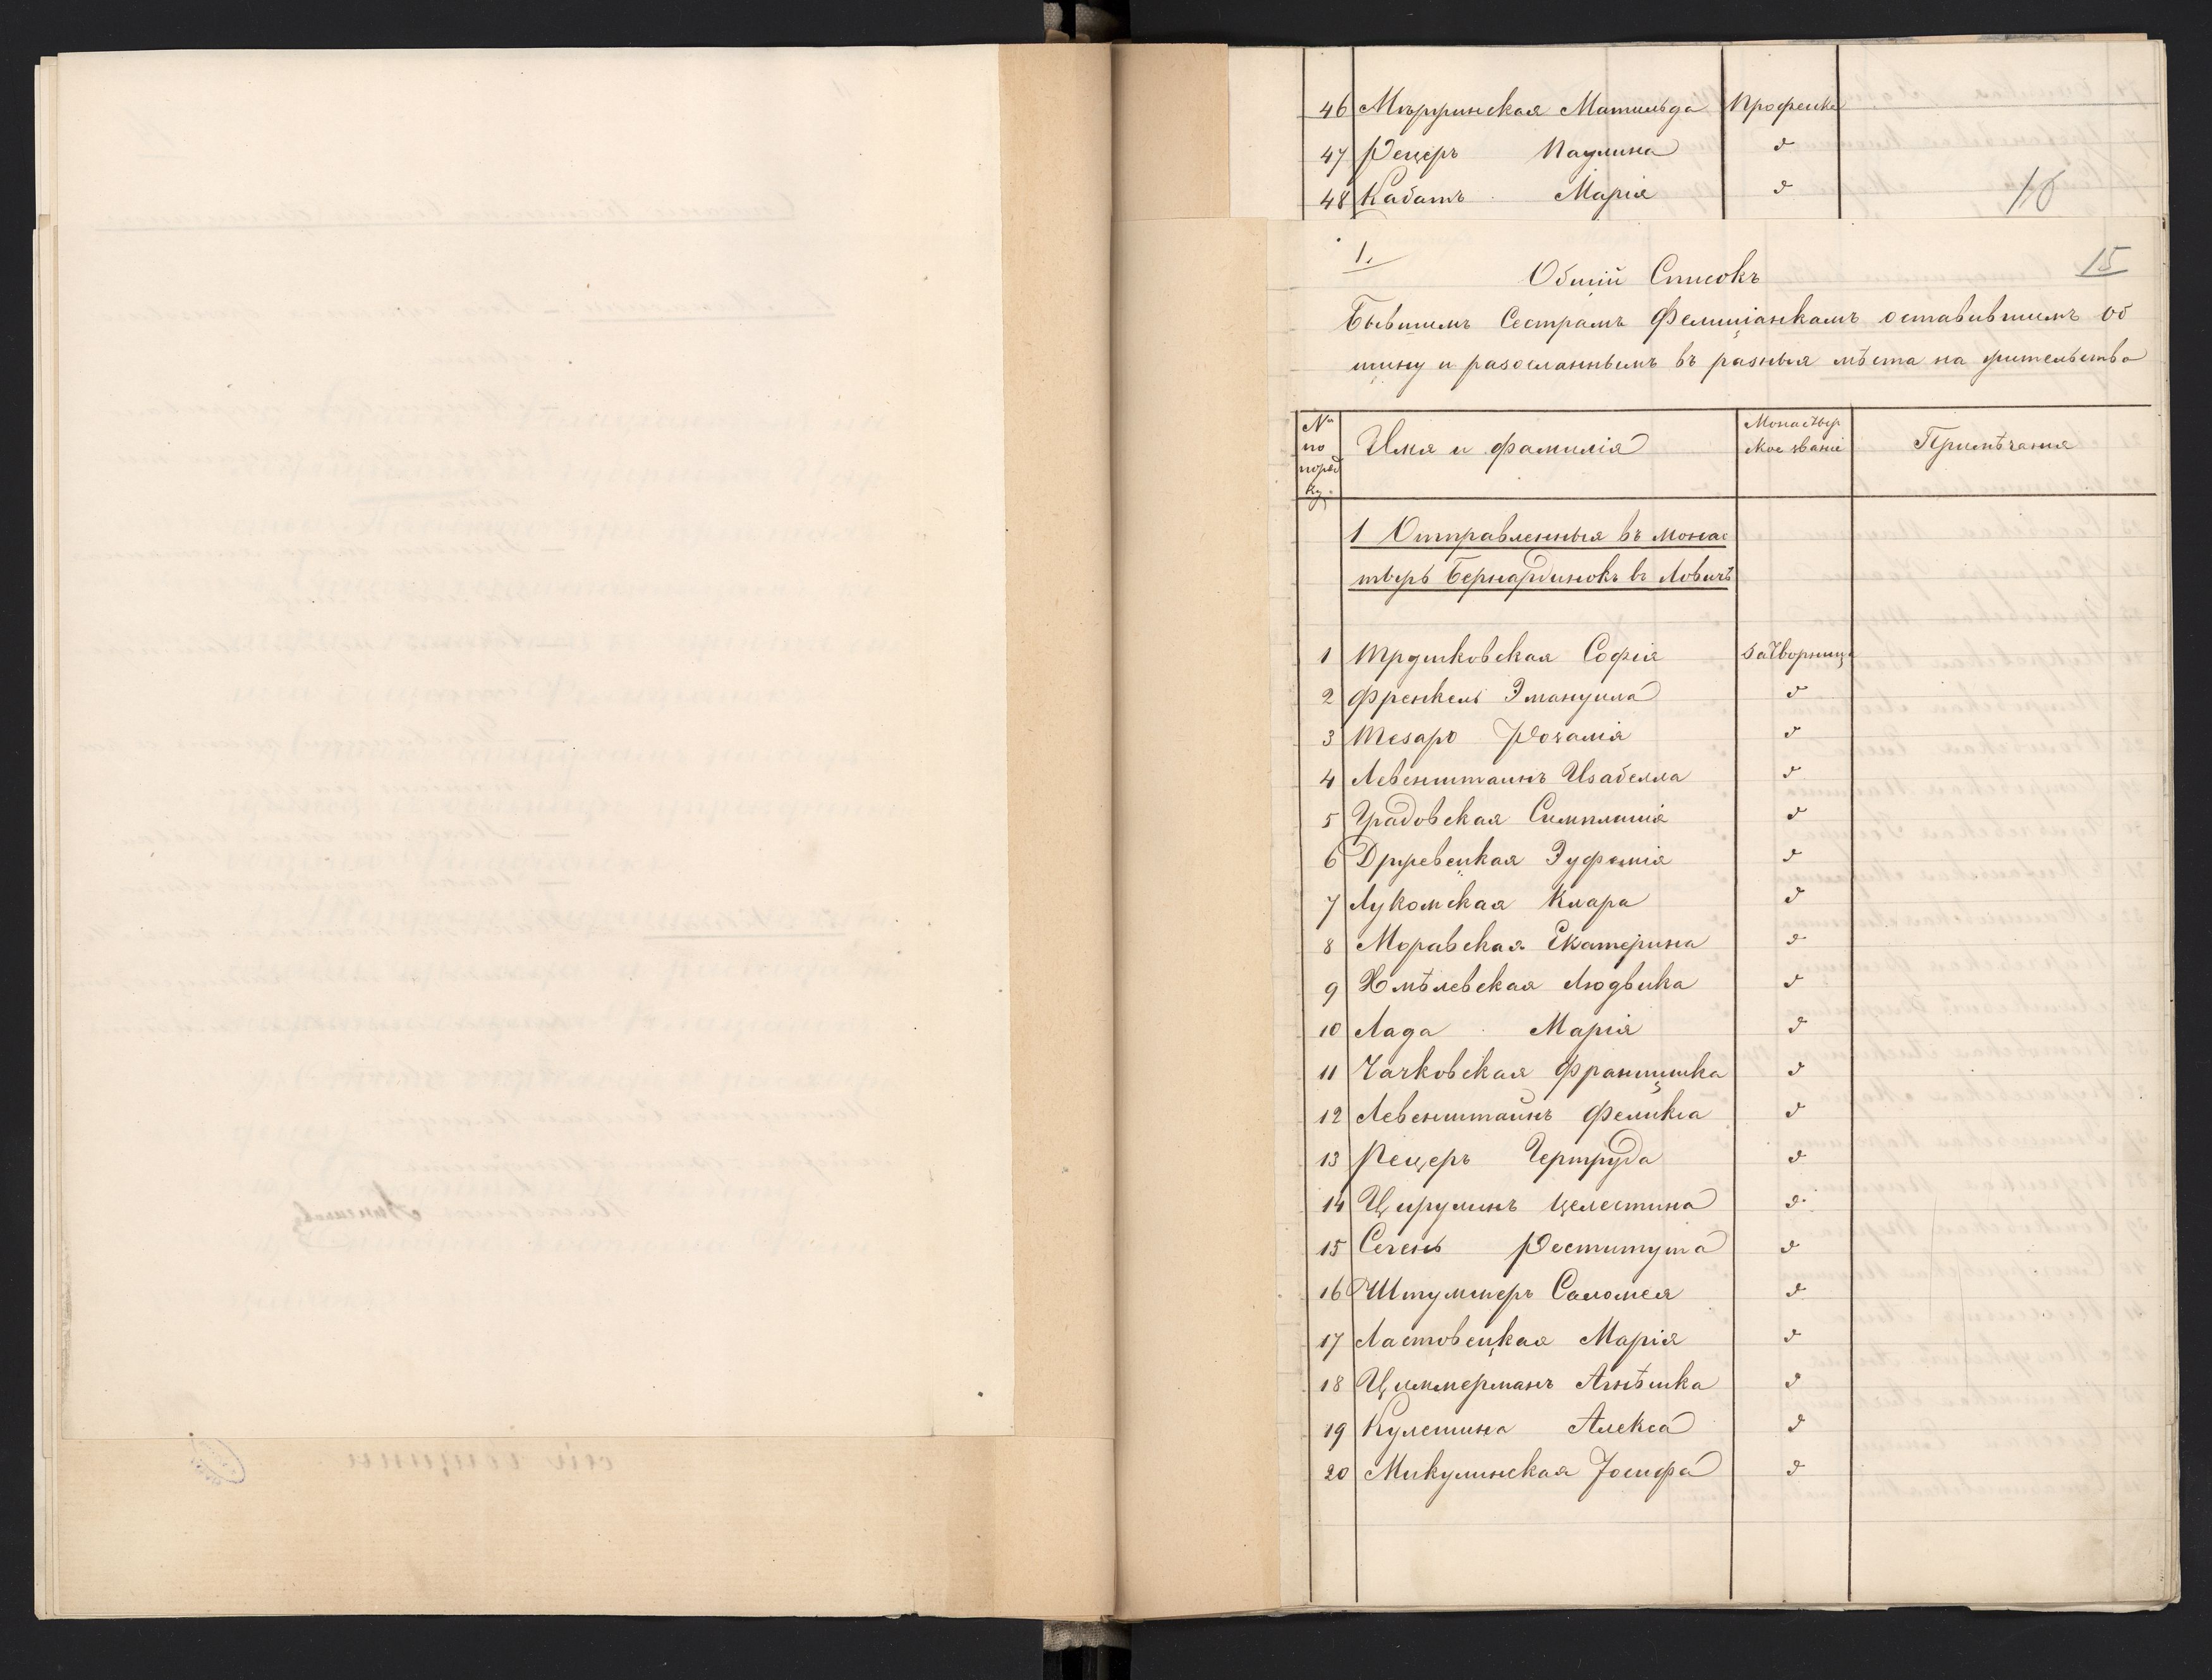 46 Мержинская Матильда Професка
47 Рецеръ Паулина d
48 Кабатъ Марія d
16
1.
15
Общій Списокъ
Бывшимъ Сестрамъ Фелиціанкамъ оставившимъ об
щину и разосланнымъ въ разныя мѣста на жительство
№ по поряд ку. Имя и фамилія Монастыр ское званіе Примѣчанія
1 Отправленныя въ монас
тырь Бернардинокъ въ Ловичѣ
1 Трушковская Софія затворница
2 Френкель Эмануила d
3 Тезаро Розалія d
4 Левенштаинъ Изабелла d
5 Градовская Симплиція d
6 Држевецкая Эуфемія d
7 Лукомская Клара d
8 Моравская Екатерина d
9 Хмѣлевская Людвика d
10 Лада Марія d
11 Чачковская Францишка d
12 Левенштаинъ Феликса d
13 Рецеръ Гертруда d
14 Цирулинъ Целестина d
15 Сечень Реститута d
16 Штуммеръ Саломея d
17 Ластовецкая Марія d
18 Циммерманъ Агнѣшка d
19 Кулешина Алекса d
20 Микулинская Іосифа d